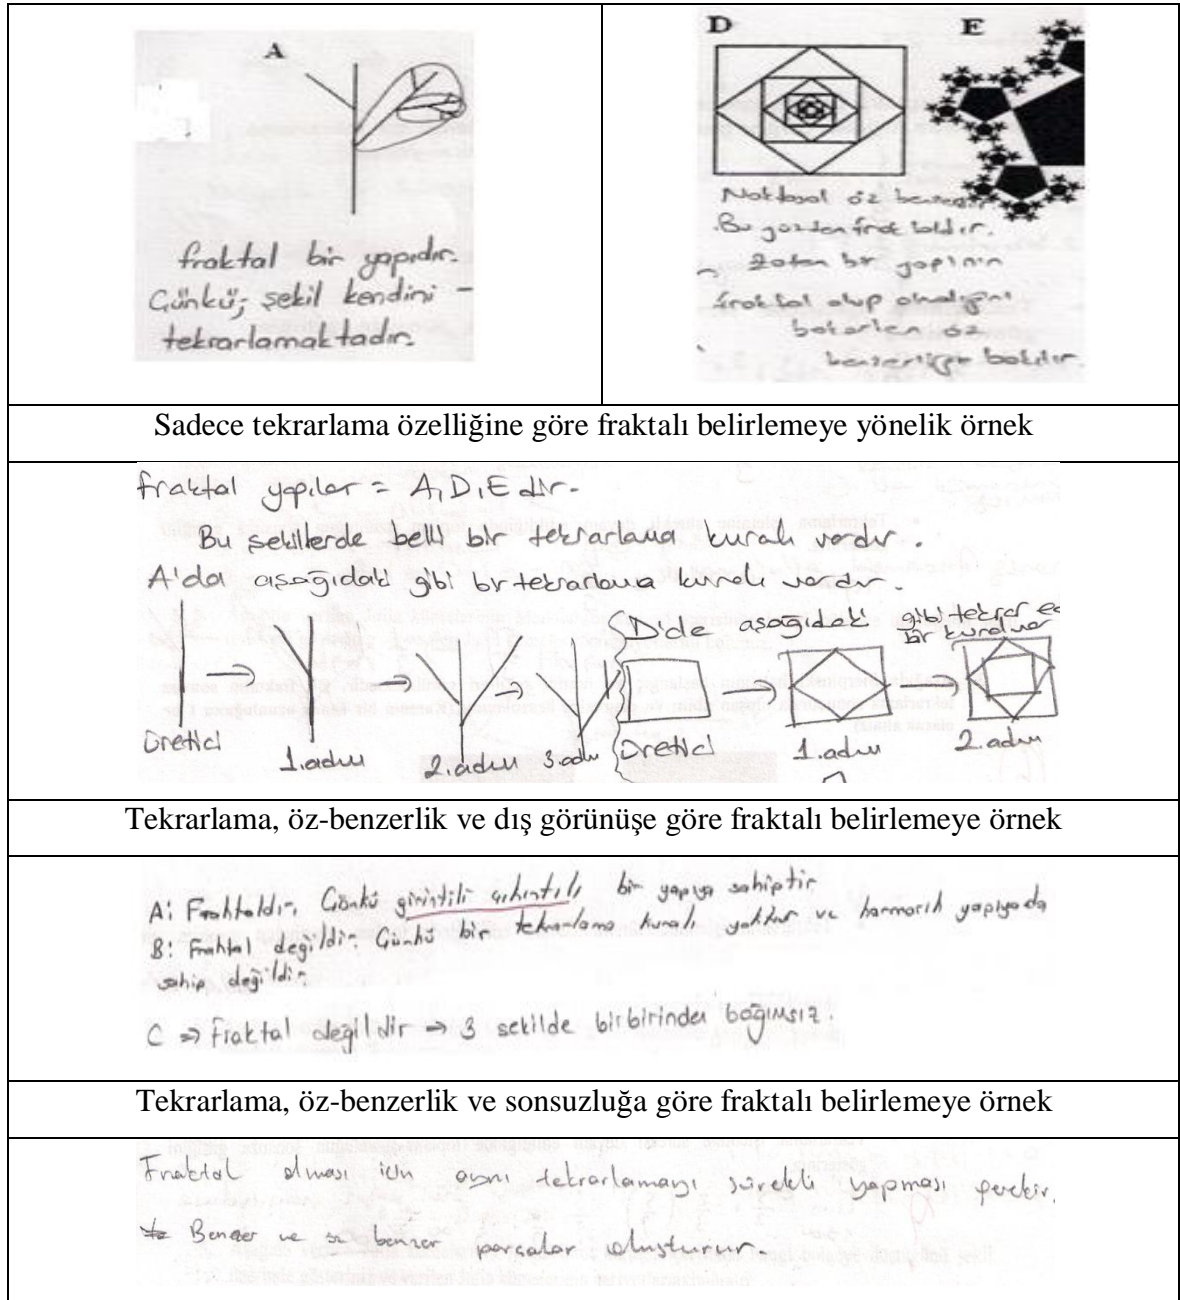 A
fraktal bir yapıdır.
Çünkü; şekil kendini -
tekrarlamaktadır.
D E
Noktasal öz benzerdir.
Bu yüzden fraktaldır.
Zaten bir yapının
fraktal olup olmadığını
bakarken öz
benzerliğe bakılır.
Sadece tekrarlama özelliğine göre fraktalı belirlemeye yönelik örnek
fraktal yapılar = A, D, E dir.
Bu şekillerde belli bir tekrarlama kuralı vardır.
A'da aşağıdaki gibi bir tekrarlama kuralı vardır.
D'de aşağıdaki gibi tekrar ed
bir kural var
Üretici 1.adım 2.adım 3.adım Üretici 1.adım 2.adım
Tekrarlama, öz-benzerlik ve dış görünüşe göre fraktalı belirlemeye örnek
A: Fraktaldır, Çünkü girintili çıkıntılı bir yapıya sahiptir
B: Fraktal değildir. Çünkü bir tekrarlama kuralı yoktur ve harmonik yapıyada
sahip değildir.
C ⇒ Fraktal değildir ⇒ 3 şekilde birbirinden bağımsız.
Tekrarlama, öz-benzerlik ve sonsuzluğa göre fraktalı belirlemeye örnek
Fraktal olması için aynı tekrarlamayı sürekli yapması gerekir.
Benzer ve öz benzer parçalar oluşturur.